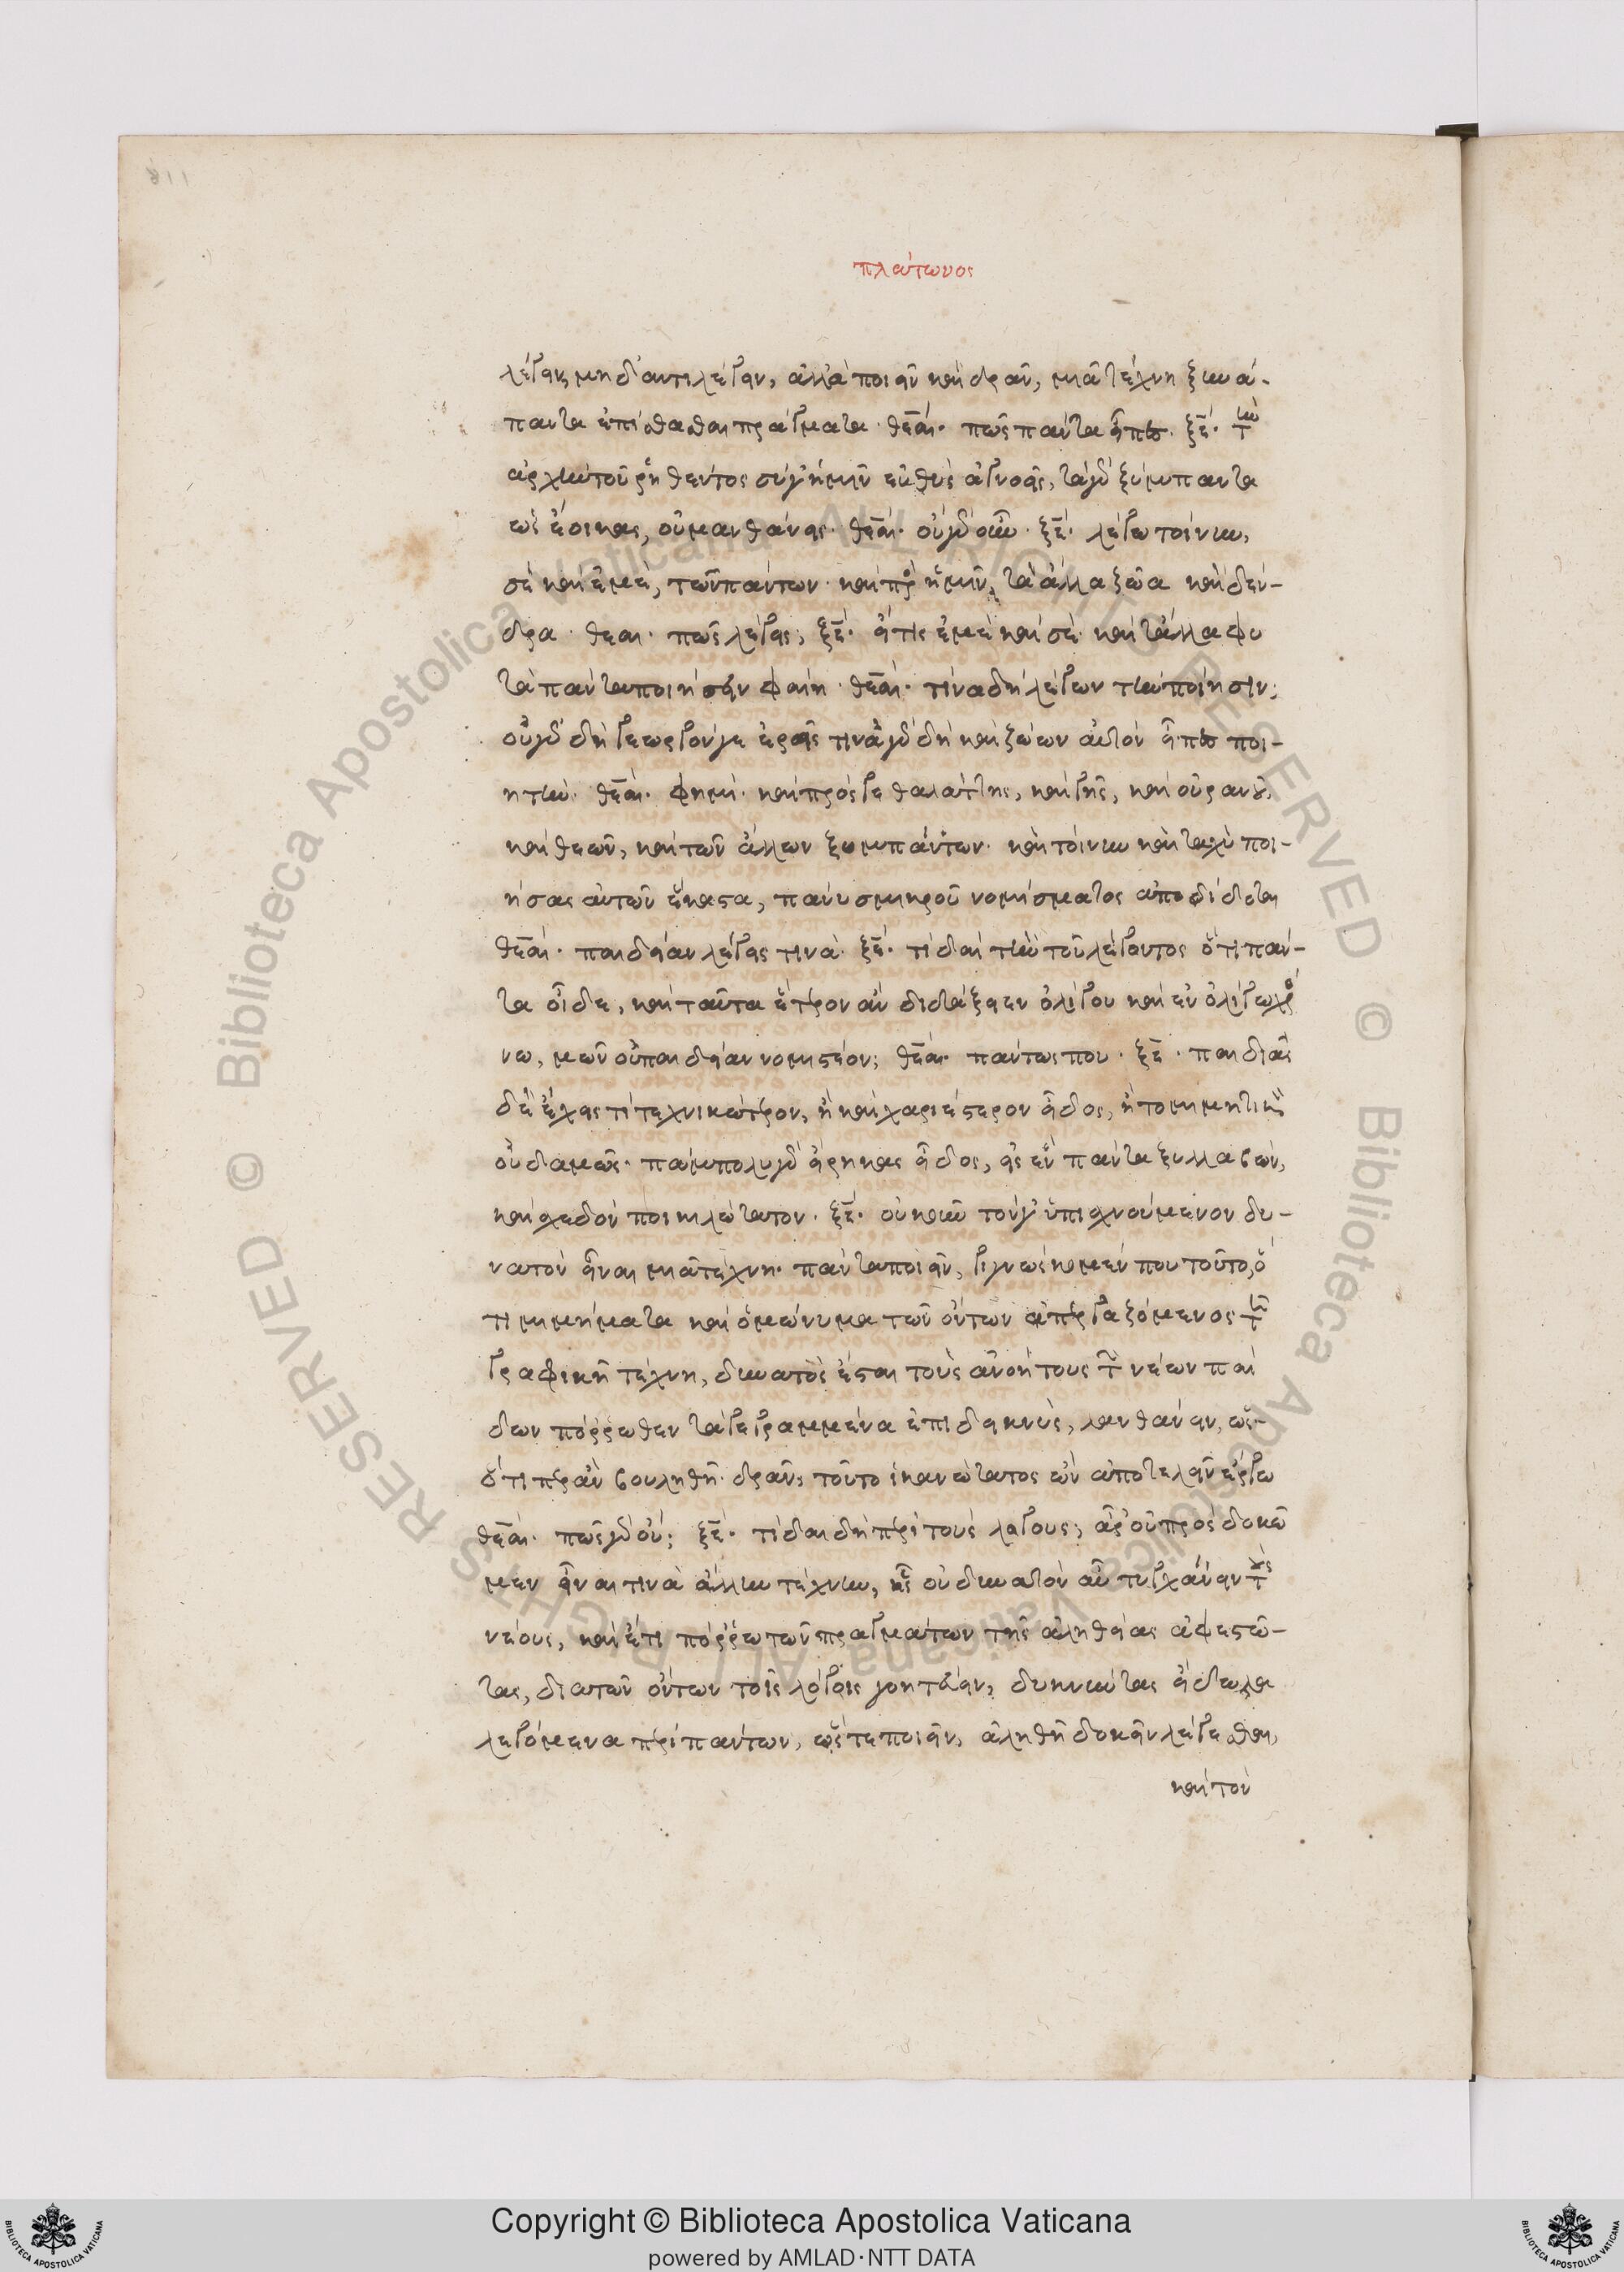 πλάτωνος
λέγειν, μηδ' ἀντιλέγειν, ἀλλὰ ποιεῖν καὶ δρᾶν, μιᾶ τέχνη ξυνά-
παντα ἐπίστασθαι πράγματα· θεαί· πῶς πάντα εἶπες· ξέ· τὴν
ἀρχὴν τοῦ ῥηθέντος σύγ' ἡμῖν εὐθὺς ἀγνοεῖς, τὰ γὰρ ξύμπαντα
ὡς ἔοικας, οὐ μανθάνεις· θεαί· οὐ γὰρ οὖν· ξέ· λέγω τοίνυν,
σὲ καὶ ἐμὲ, τῶν πάντων· καὶ πρὸς ἡμῖν, τὰ ἄλλα ζῶα καὶ δέν-
δρα· θεαι· πῶς λέγεις; ξέ· εἴ τις ἐμὲ καὶ σὲ καὶ τἄλλα φυ
τὰ πάντα ποιήσειν φαίη· θεαί· τίνα δὴ λέγων τὴν ποίησιν;
οὐ γὰρ δὴ γεωργόν γε ἐρεῖς τινὰ γὰρ δὴ καὶ ζώων αὐτὸν εἶπες ποι-
ητήν· θεαί· φημί· καὶ πρός γε θαλάττης, καὶ γῆς, καὶ οὐρανοῦ,
καὶ θεῶν, καὶ τῶν ἄλλων ξυμπάντων· καὶ τοίνυν καὶ ταχὺ ποι-
ήσας αὐτῶν ἕκαστα, πάνυ σμικροῦ νομίσματος ἀποδίδοται
θεαί· παιδείαν λέγεις τινά· ξέ· τί δαὶ τὴν τοῦ λέγοντος ὅτι πάν-
τα οἶδε, καὶ ταῦτα ἕτερον ἂν διδάξειεν ὀλίγου καὶ ἐν ὀλίγω χρό
νω, μῶν οὐ παιδείαν νομιστέον; θεαί· πάντως που· ξέ· παιδιᾶς
δὲ ἔχεις τί τεχνικώτερον, ἢ καὶ χαριέστερον εἶδος, ἢ τὸ μιμητικόν
οὐδαμῶς· πάμπολυ γὰρ εἴρηκας εἶδος, εἰς ἓν πάντα ξυλλαβών,
καὶ σχεδὸν ποικιλώτατον· ξέ· οὐκοῦν τόν γ' ὑπισχνούμενον δυ-
νατὸν εἶναι μιᾶ τέχνη· πάντα ποιεῖν, γιγνώσκομέν που τοῦτο, ὅ
τι μιμήματα καὶ ὁμώνυμα τῶν ὄντων ἀπεργαζόμενος τῆ
γραφικῆ τέχνη, δυνατὸς ἔσται τοὺς ἀνοήτους τῶν νέων παί
δων πόρρωθεν τὰ γεγραμμένα ἐπιδεικνὺς, λανθάνειν, ὡς
ὅτι περ ἂν βουληθῆ δρᾶν, τοῦτο ἱκανώτατος ὢν ἀποτελεῖν ἔργω
θεαί· πῶς γὰρ οὔ; ξέ· τί δαι δὴ περὶ τοὺς λόγους; ἆρ' οὐ προςδοκῶ
μεν εἶναι τινὰ ἄλλην τέχνην, ἧς οὐ δυνατὸν αὖ τυγχάνειν τοὺς
νέους, καὶ ἔτι πόρρω τῶν πραγμάτων τῆς ἀληθείας ἀφεστῶ-
τας, διὰ τῶν ὄντων τοῖς λόγοις γοητεύειν, δεικνύντας εἴδωλα
λεγόμενα περὶ πάντων, ὥστε ποιεῖν, ἀληθῆ δοκεῖν λέγεσθαι,
καὶ τὸν
Copyright © Biblioteca Apostolica Vaticana
powered by AMLAD·NTT DATA